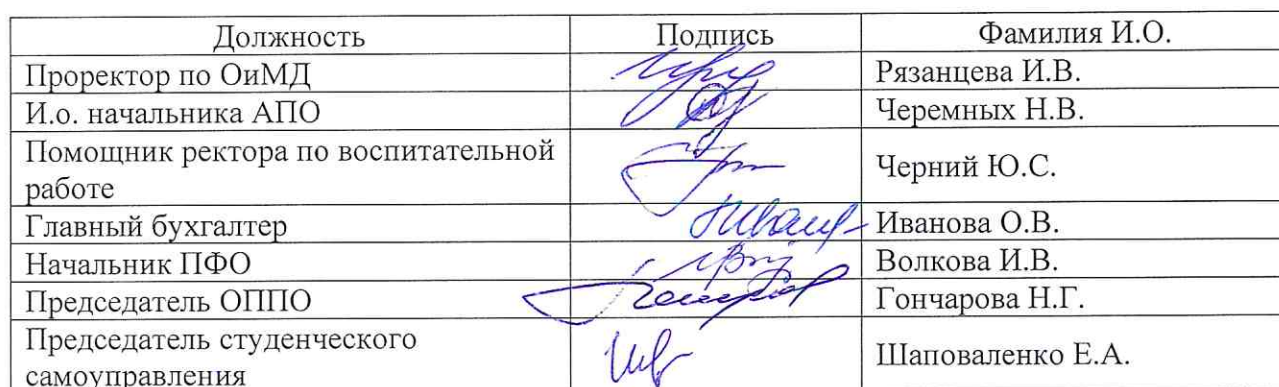 Должность Подпись Фамилия И.О.
Проректор по ОиМД Рязанцева И.В.
И.о. начальника АПО Черемных Н.В.
Помощник ректора по воспитательной
работе Черний Ю.С.
Главный бухгалтер Иванова О.В.
Начальник ПФО Волкова И.В.
Председатель ОППО Гончарова Н.Г.
Председатель студенческого
самоуправления Шаповаленко Е.А.